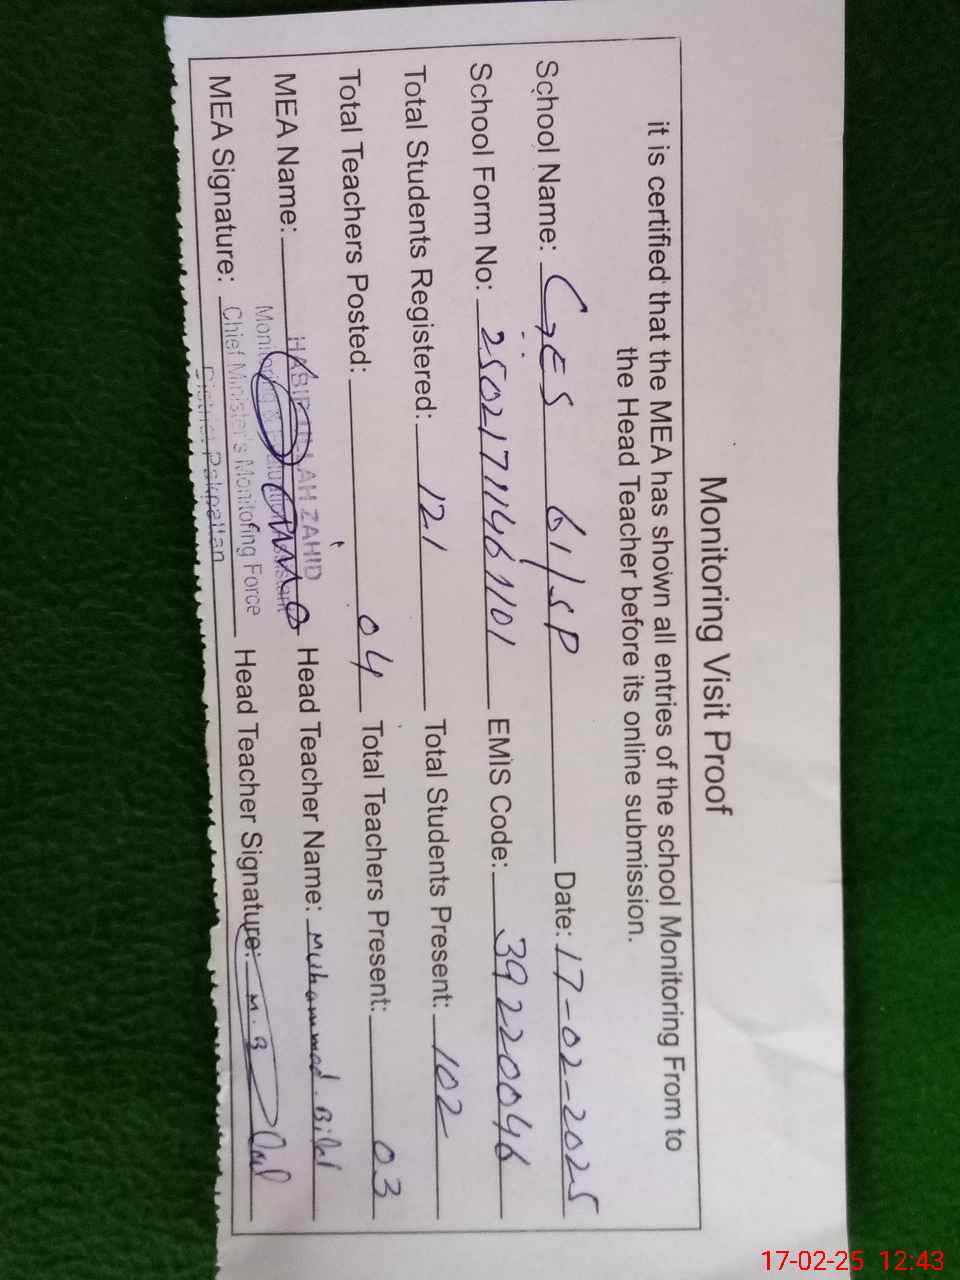 Monitoring Visit Proof
it is certified that the MEA has shown all entries of the school Monitoring From to
the Head Teacher before its online submission.
School Name: GES 61/SP Date: 17-02-2025
School Form No: 25021711461101 EMIS Code: 39220046
Total Students Registered: 121 Total Students Present: 102
Total Teachers Posted: 04 Total Teachers Present: 03
MEA Name: ZAHID Head Teacher Name: Muhammad Bilal
Monitoring & Assistant
MEA Signature: Chief Minister's Monitoring Force Head Teacher Signature: M.B
District Pakpattan
17-02-25 12:43